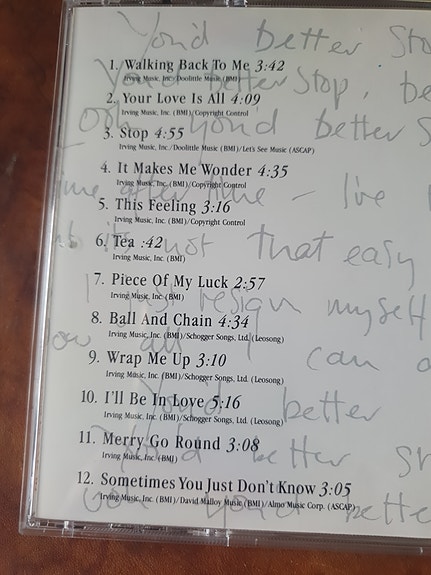 You'd better Sto
1. Walking Back To Me 3:42
Irving Music, Inc./Doolittle Music (BMI)
You'd better Stop, be
2. Your Love Is All 4:09
Irving Music, Inc. (BMI)/Copyright Control
Ooh you'd better S
3. Stop 4:55
Irving Music, Inc./Doolittle Music (BMI)/Let's See Music (ASCAP)
4. It Makes Me Wonder 4:35
Irving Music, Inc. (BMI)/Copyright Control
time after time - I've
5. This Feeling 3:16
Irving Music, Inc. (BMI)/Copyright Control
6. Tea :42
Irving Music, Inc. (BMI)
it's not that easy
7. Piece Of My Luck 2:57
Irving Music, Inc. (BMI)
resign myself
8. Ball And Chain 4:34
Irving Music, Inc. (BMI)/Schogger Songs, Ltd. (Leosong)
can
9. Wrap Me Up 3:10
Irving Music, Inc. (BMI)/Schogger Songs, Ltd. (Leosong)
10. I'll Be In Love 5:16
Irving Music, Inc. (BMI)/Schogger Songs, Ltd. (Leosong)
You'd better
11. Merry Go Round 3:08
Irving Music, Inc. (BMI)
You'd better St
12. Sometimes You Just Don't Know 3:05
Irving Music, Inc. (BMI)/David Malloy Music (BMI)/Almo Music Corp. (ASCAP)
you'd bette